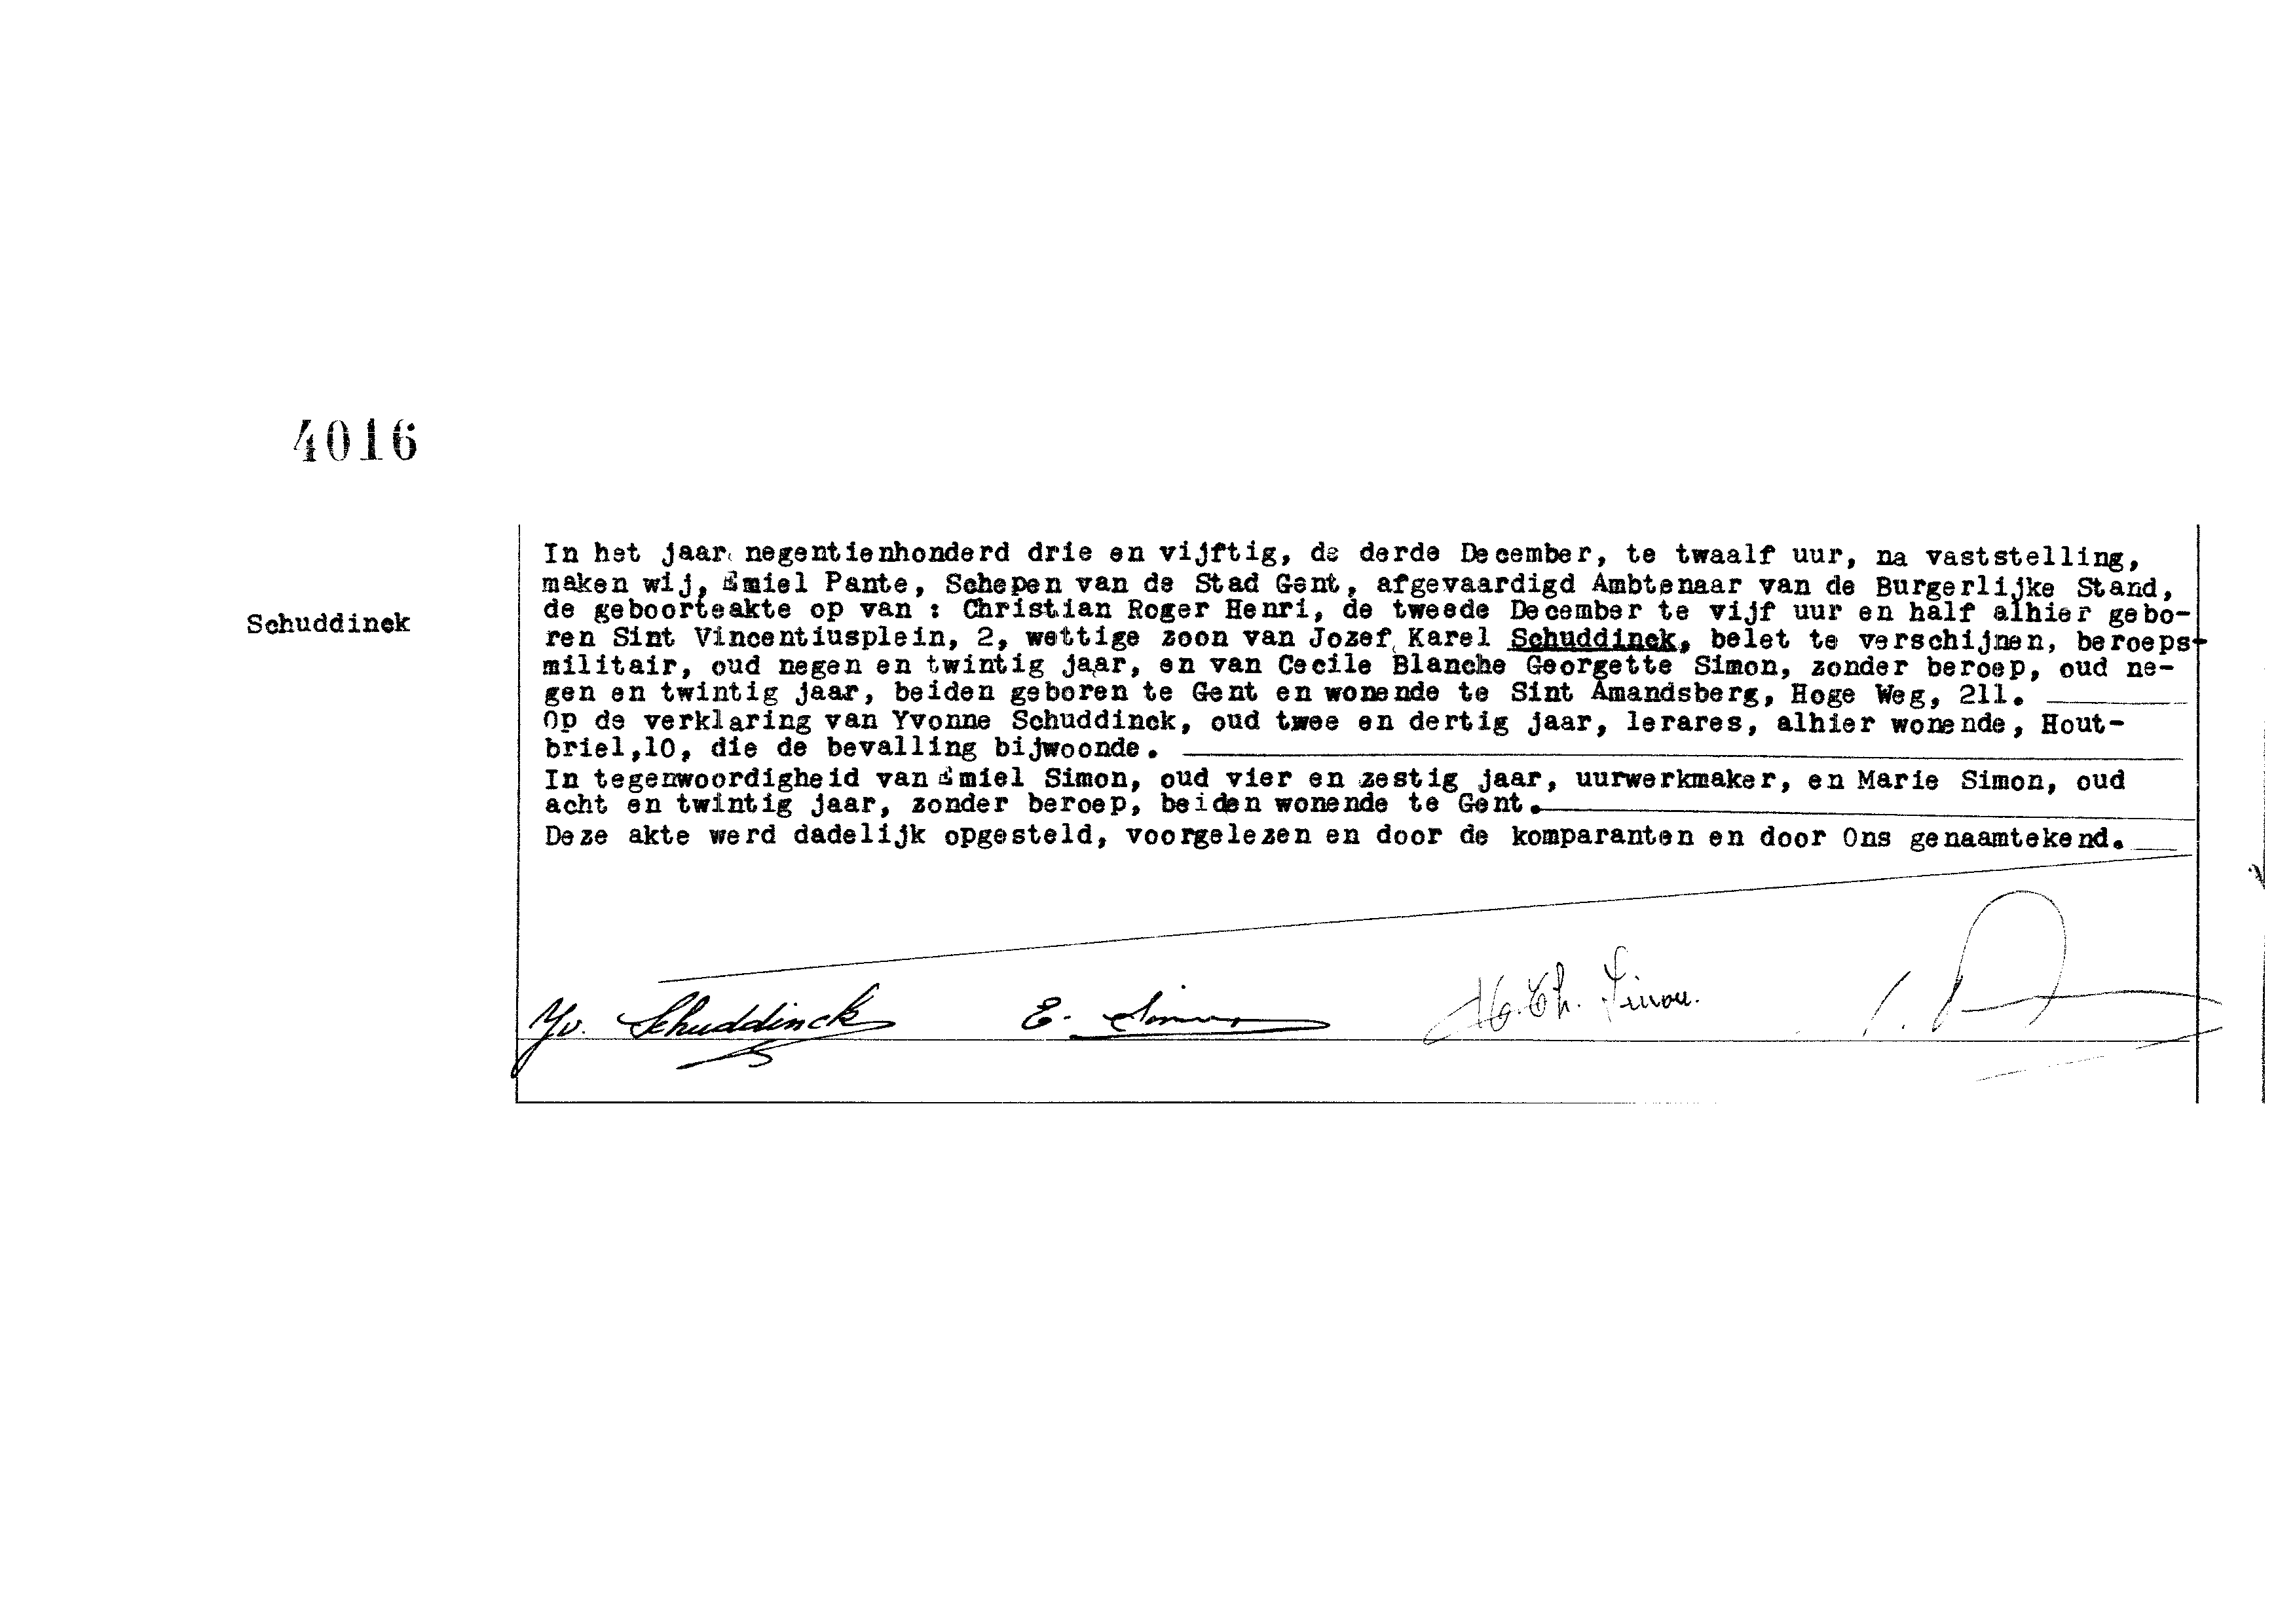 4016
In het jaar negentienhonderd drie en vijftig, de derde December, te twaalf uur, na vaststelling,
maken wij, Emiel Pante, Schepen van de Stad Gent, afgevaardigd Ambtenaar van de Burgerlijke Stand,
de geboorteakte op van : Christian Roger Henri, de tweede December te vijf uur en half alhier gebo-
Schuddinck
ren Sint Vincentiusplein, 2, wettige zoon van Jozef Karel Schuddinck, belet te verschijnen, beroeps-
militair, oud negen en twintig jaar, en van Cecile Blanche Georgette Simon, zonder beroep, oud ne-
gen en twintig jaar, beiden geboren te Gent en wonende te Sint Amandsberg, Hoge Weg, 211.
Op de verklaring van Yvonne Schuddinck, oud twee en dertig jaar, lerares, alhier wonende, Hout-
briel,10, die de bevalling bijwoonde.
In tegenwoordigheid van Emiel Simon, oud vier en zestig jaar, uurwerkmaker, en Marie Simon, oud
acht en twintig jaar, zonder beroep, beiden wonende te Gent.
Deze akte werd dadelijk opgesteld, voorgelezen en door de komparanten en door Ons genaamtekend.
Yv. Schuddinck E. Simon Simon.